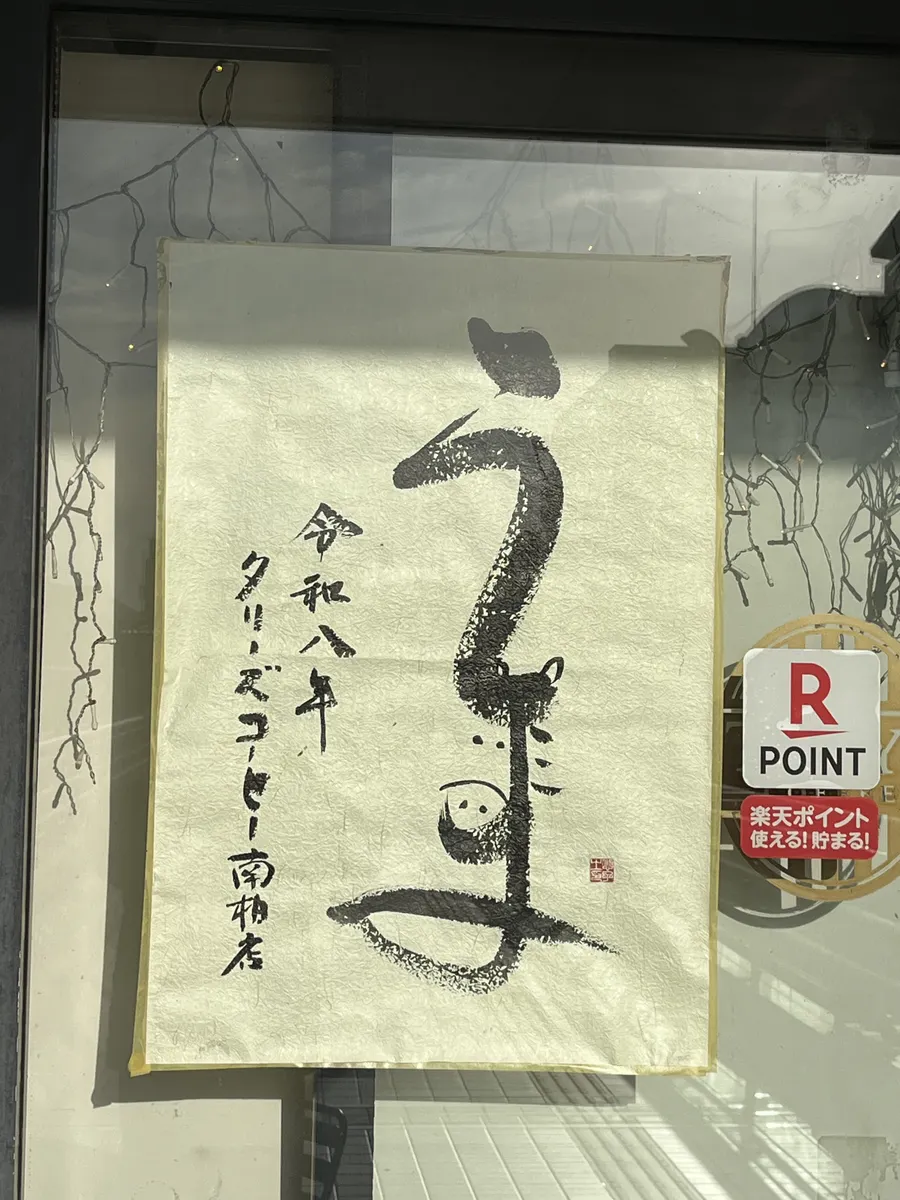 うま
令和八年
タリーズコーヒー南柏店
R
POINT
楽天ポイント
使える!貯まる!